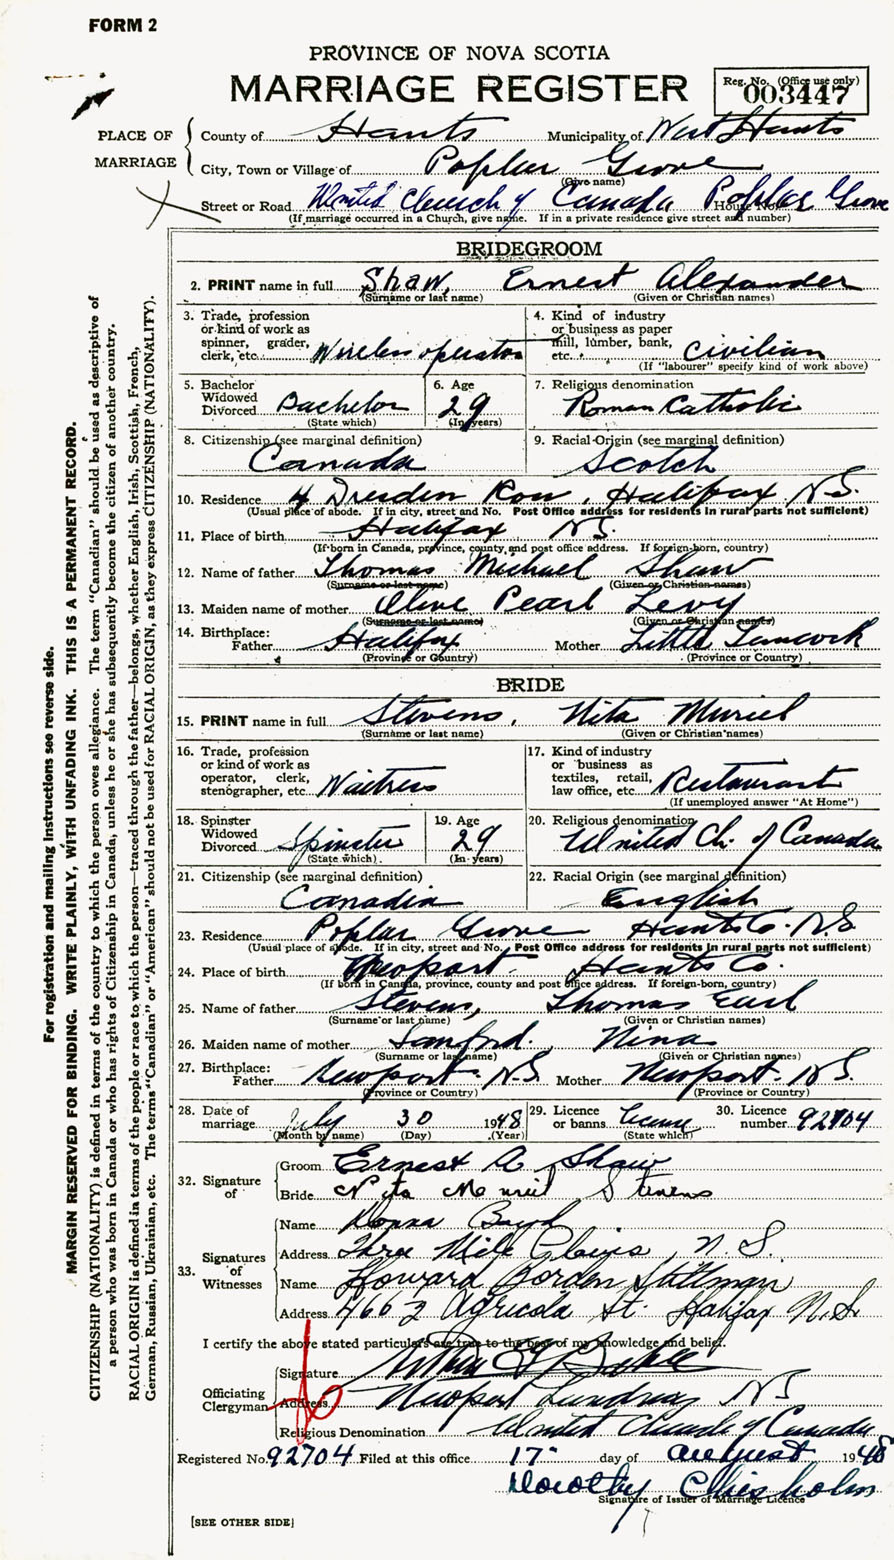 FORM 2
PROVINCE OF NOVA SCOTIA
MARRIAGE REGISTER
Reg. No. (Office use only)
003447
PLACE OF MARRIAGE
County of Hants Municipality of West Hants
City, Town or Village of Poplar Grove
(Give name)
Street or Road United Church of Canada House No. Poplar Grove
(If marriage occurred in a Church, give name. If in a private residence give street and number)
BRIDEGROOM
2. PRINT name in full Shaw, Ernest Alexander
(Surname or last name) (Given or Christian names)
3. Trade, profession or kind of work as spinner, grader, clerk, etc. Wireless operator
4. Kind of industry or business as paper mill, lumber, bank, etc. Civilian
(If "labourer" specify kind of work above)
5. Bachelor Widowed Divorced Bachelor
(State which)
6. Age 29
(In years)
7. Religious denomination Roman Catholic
8. Citizenship (see marginal definition) Canada
9. Racial Origin (see marginal definition) Scotch
10. Residence 4 Dresden Row, Halifax N.S.
(Usual place of abode. If in city, street and No. Post Office address for residents in rural parts not sufficient)
11. Place of birth Halifax NS.
(If born in Canada, province, county and post office address. If foreign-born, country)
12. Name of father Thomas Michael Shaw
(Surname or last name) (Given or Christian names)
13. Maiden name of mother Olive Pearl Levy
(Surname or last name) (Given or Christian names)
14. Birthplace: Father Halifax Mother Little Tancook
(Province or Country) (Province or Country)
BRIDE
15. PRINT name in full Stevens, Nita Muriel
(Surname or last name) (Given or Christian names)
16. Trade, profession or kind of work as operator, clerk, stenographer, etc. Waitress
17. Kind of industry or business as textiles, retail, law office, etc. Restaurant
(If unemployed answer "At Home")
18. Spinster Widowed Divorced Spinster
(State which)
19. Age 29
(In years)
20. Religious denomination United Ch. of Canada
21. Citizenship (see marginal definition) Canadia
22. Racial Origin (see marginal definition) English
23. Residence Poplar Grove Hants Co. N.S
(Usual place of abode. If in city, street and No. Post Office address for residents in rural parts not sufficient)
24. Place of birth Newport Hants Co.
(If born in Canada, province, county and post office address. If foreign-born, country)
25. Name of father Stevens, Thomas Earl
(Surname or last name) (Given or Christian names)
26. Maiden name of mother Sanford, Nina
(Surname or last name) (Given or Christian names)
27. Birthplace: Father Newport. N.S. Mother Newport. N.S.
(Province or Country) (Province or Country)
28. Date of marriage July 30 1948
(Month by name) (Day) (Year)
29. Licence or banns license
(State which)
30. Licence number 92704
32. Signature of
Groom Ernest A Shaw
Bride Nita Muriel Stevens
33. Signatures of Witnesses
Name Donna Boyd
Address Three Mile Plains, N.S.
Name Howard Borden
Address Agricola St. Halifax N.S.
I certify the above stated particulars are true to the best of my knowledge and belief.
Officiating Clergyman
Signature Arthur
Address Newport Landing NS
Religious Denomination United Church of Canada
Registered No. 92704 Filed at this office 17 day of August 1948
Dorothy Chisholm
Signature of Issuer of Marriage Licence
[SEE OTHER SIDE]
For registration and mailing instructions see reverse side.
MARGIN RESERVED FOR BINDING. WRITE PLAINLY, WITH UNFADING INK. THIS IS A PERMANENT RECORD.
CITIZENSHIP (NATIONALITY) is defined in terms of the country to which the person owes allegiance. The term "Canadian" should be used as descriptive of
a person who was born in Canada or who has rights of Citizenship in Canada, unless he or she has subsequently become the citizen of another country.
RACIAL ORIGIN is defined in terms of the people or race to which the person—traced through the father—belongs, whether English, Irish, Scottish, French,
German, Russian, Ukrainian, etc. The terms "Canadian" or "American" should not be used for RACIAL ORIGIN, as they express CITIZENSHIP (NATIONALITY).